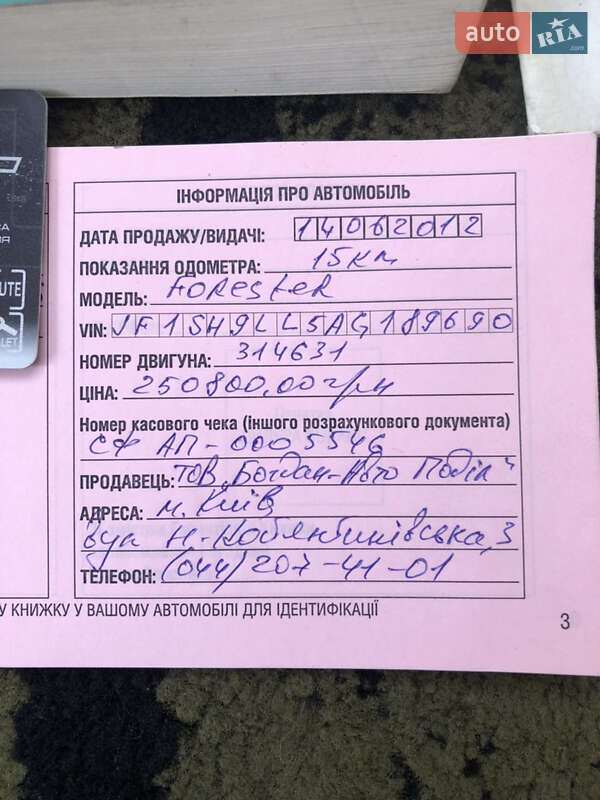 auto RIA .com
UTE
LET
ІНФОРМАЦІЯ ПРО АВТОМОБІЛЬ
ДАТА ПРОДАЖУ/ВИДАЧІ: 14062012
ПОКАЗАННЯ ОДОМЕТРА: 15км
МОДЕЛЬ: FORESTER
VIN: JF1SH9LL5AG189690
НОМЕР ДВИГУНА: 314631
ЦІНА: 250800,00грн
Номер касового чека (іншого розрахункового документа)
СФ АП-0005546
ПРОДАВЕЦЬ: ТОВ „Богдан-Авто Поділ"
АДРЕСА: м. Київ
вул Н-
, 3
ТЕЛЕФОН: (044) 207-41-01
У КНИЖКУ У ВАШОМУ АВТОМОБІЛІ ДЛЯ ІДЕНТИФІКАЦІЇ
3